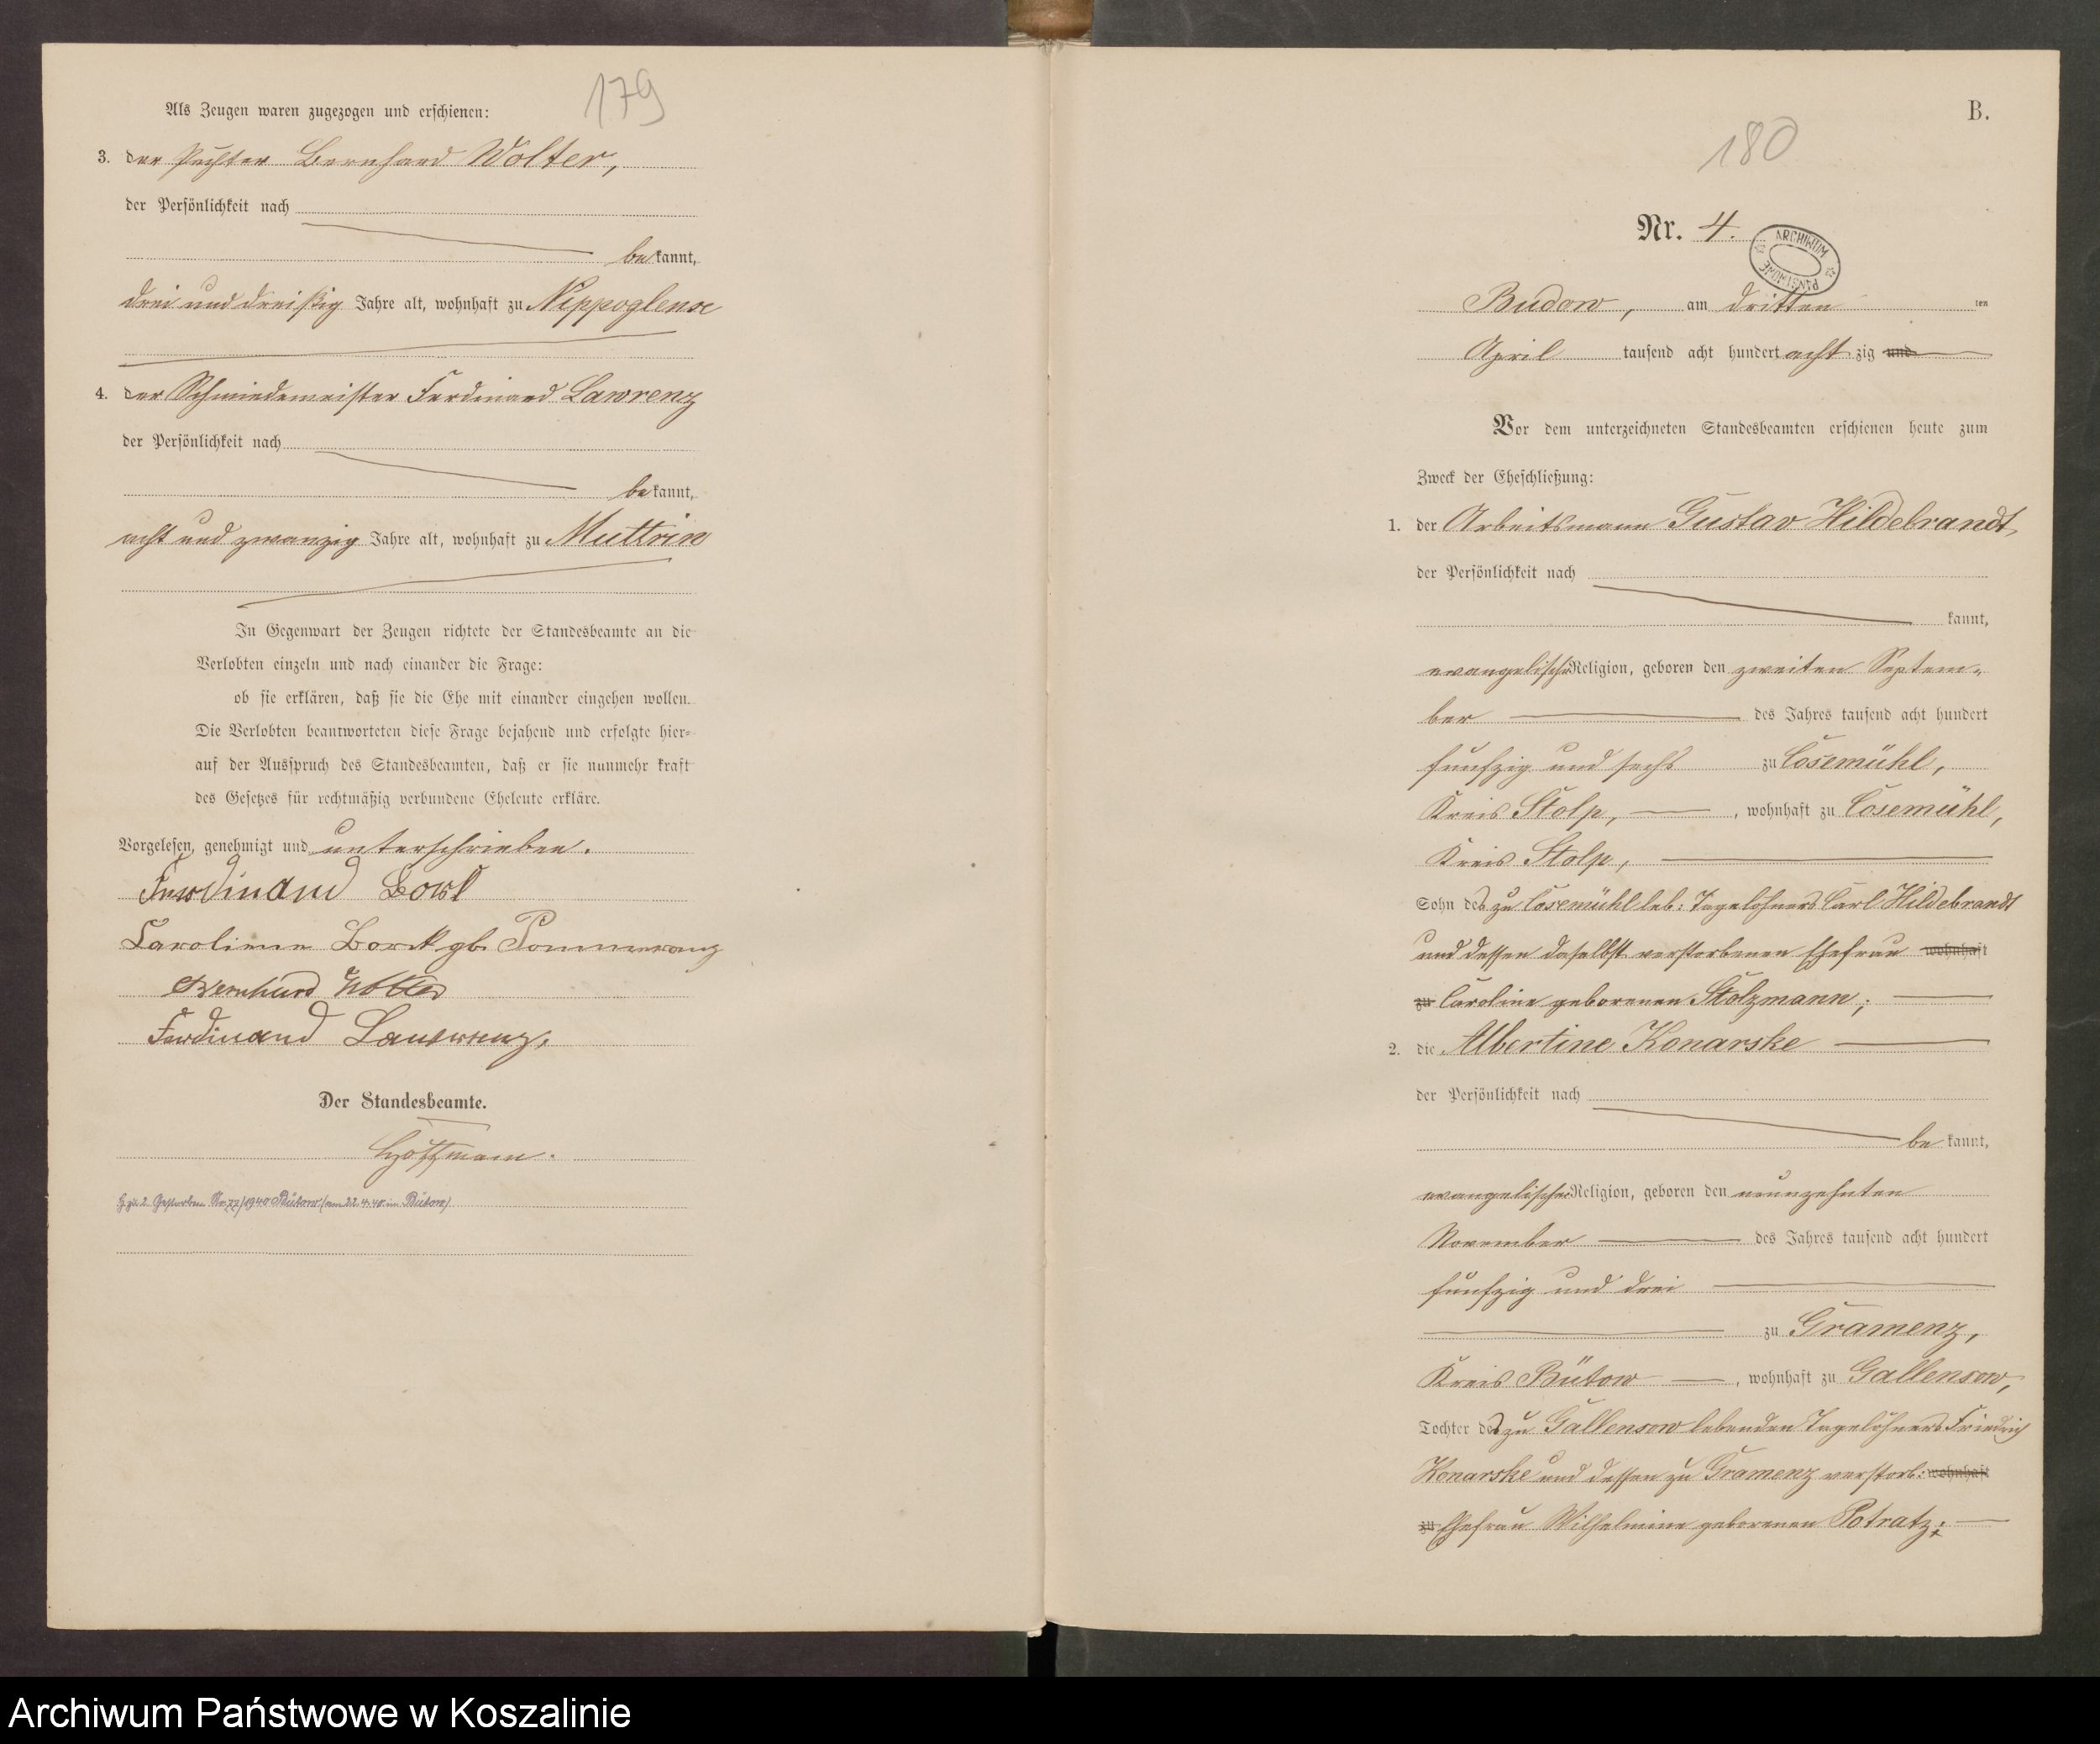 179
Als Zeugen waren zugezogen und erschienen:
3. der Pächter Bernhard Wolter,
der Persönlichkeit nach
be kannt,
drei und dreißig Jahre alt, wohnhaft zu Nippoglense
4. der Schmiedemeister Ferdinand Lawrenz
der Persönlichkeit nach
be kannt,
acht und zwanzig Jahre alt, wohnhaft zu Muttrin
In Gegenwart der Zeugen richtete der Standesbeamte an die
Verlobten einzeln und nach einander die Frage:
ob sie erklären, daß sie die Ehe mit einander eingehen wollen.
Die Verlobten beantworteten diese Frage bejahend und erfolgte hier-
auf der Ausspruch des Standesbeamten, daß er sie nunmehr kraft
des Gesetzes für rechtmäßig verbundene Eheleute erkläre.
Vorgelesen, genehmigt und unterschrieben.
Ferdinand
Caroline Borck gb. Pommerang
Bernhard Wolter
Ferdinand Lauwrenz.
Der Standesbeamte.
H. zu 2. Gestorben Nr. 77/1940 Bütow (am 22.4.40 in Bütow)
B.
180
Nr. 4.
ARCHIWUM PAŃSTWOWE
Budow, am dritten ten
April tausend acht hundert acht zig und
Vor dem unterzeichneten Standesbeamten erschienen heute zum
Zweck der Eheschließung:
1. der Arbeitsmann Gustav Hildebrandt,
der Persönlichkeit nach
kannt,
evangelischer Religion, geboren den zweiten Septem-
ber des Jahres tausend acht hundert
fünfzig und sechs zu Cosemühl,
Kreis Stolp, , wohnhaft zu Cosemühl,
Kreis Stolp,
Sohn des zu Cosemühl leb: Tagelöhners Carl Hildebrandt
und dessen daselbst verstorbenen Ehefrau wohnhaft
zu Caroline geborenen Stolzmann;
2. die Albertine Konarske
der Persönlichkeit nach
be kannt,
evangelischer Religion, geboren den neunzehnten
November des Jahres tausend acht hundert
fünfzig und drei
zu Gramenz,
Kreis Bütow , wohnhaft zu Gallensow,
Tochter des zu Gallensow lebenden Tagelöhners Friedrich
Konarske und dessen zu Gramenz verstorb: wohnhaft
zu Ehefrau Wilhelmine geborenen Potratz;
Archiwum Państwowe w Koszalinie